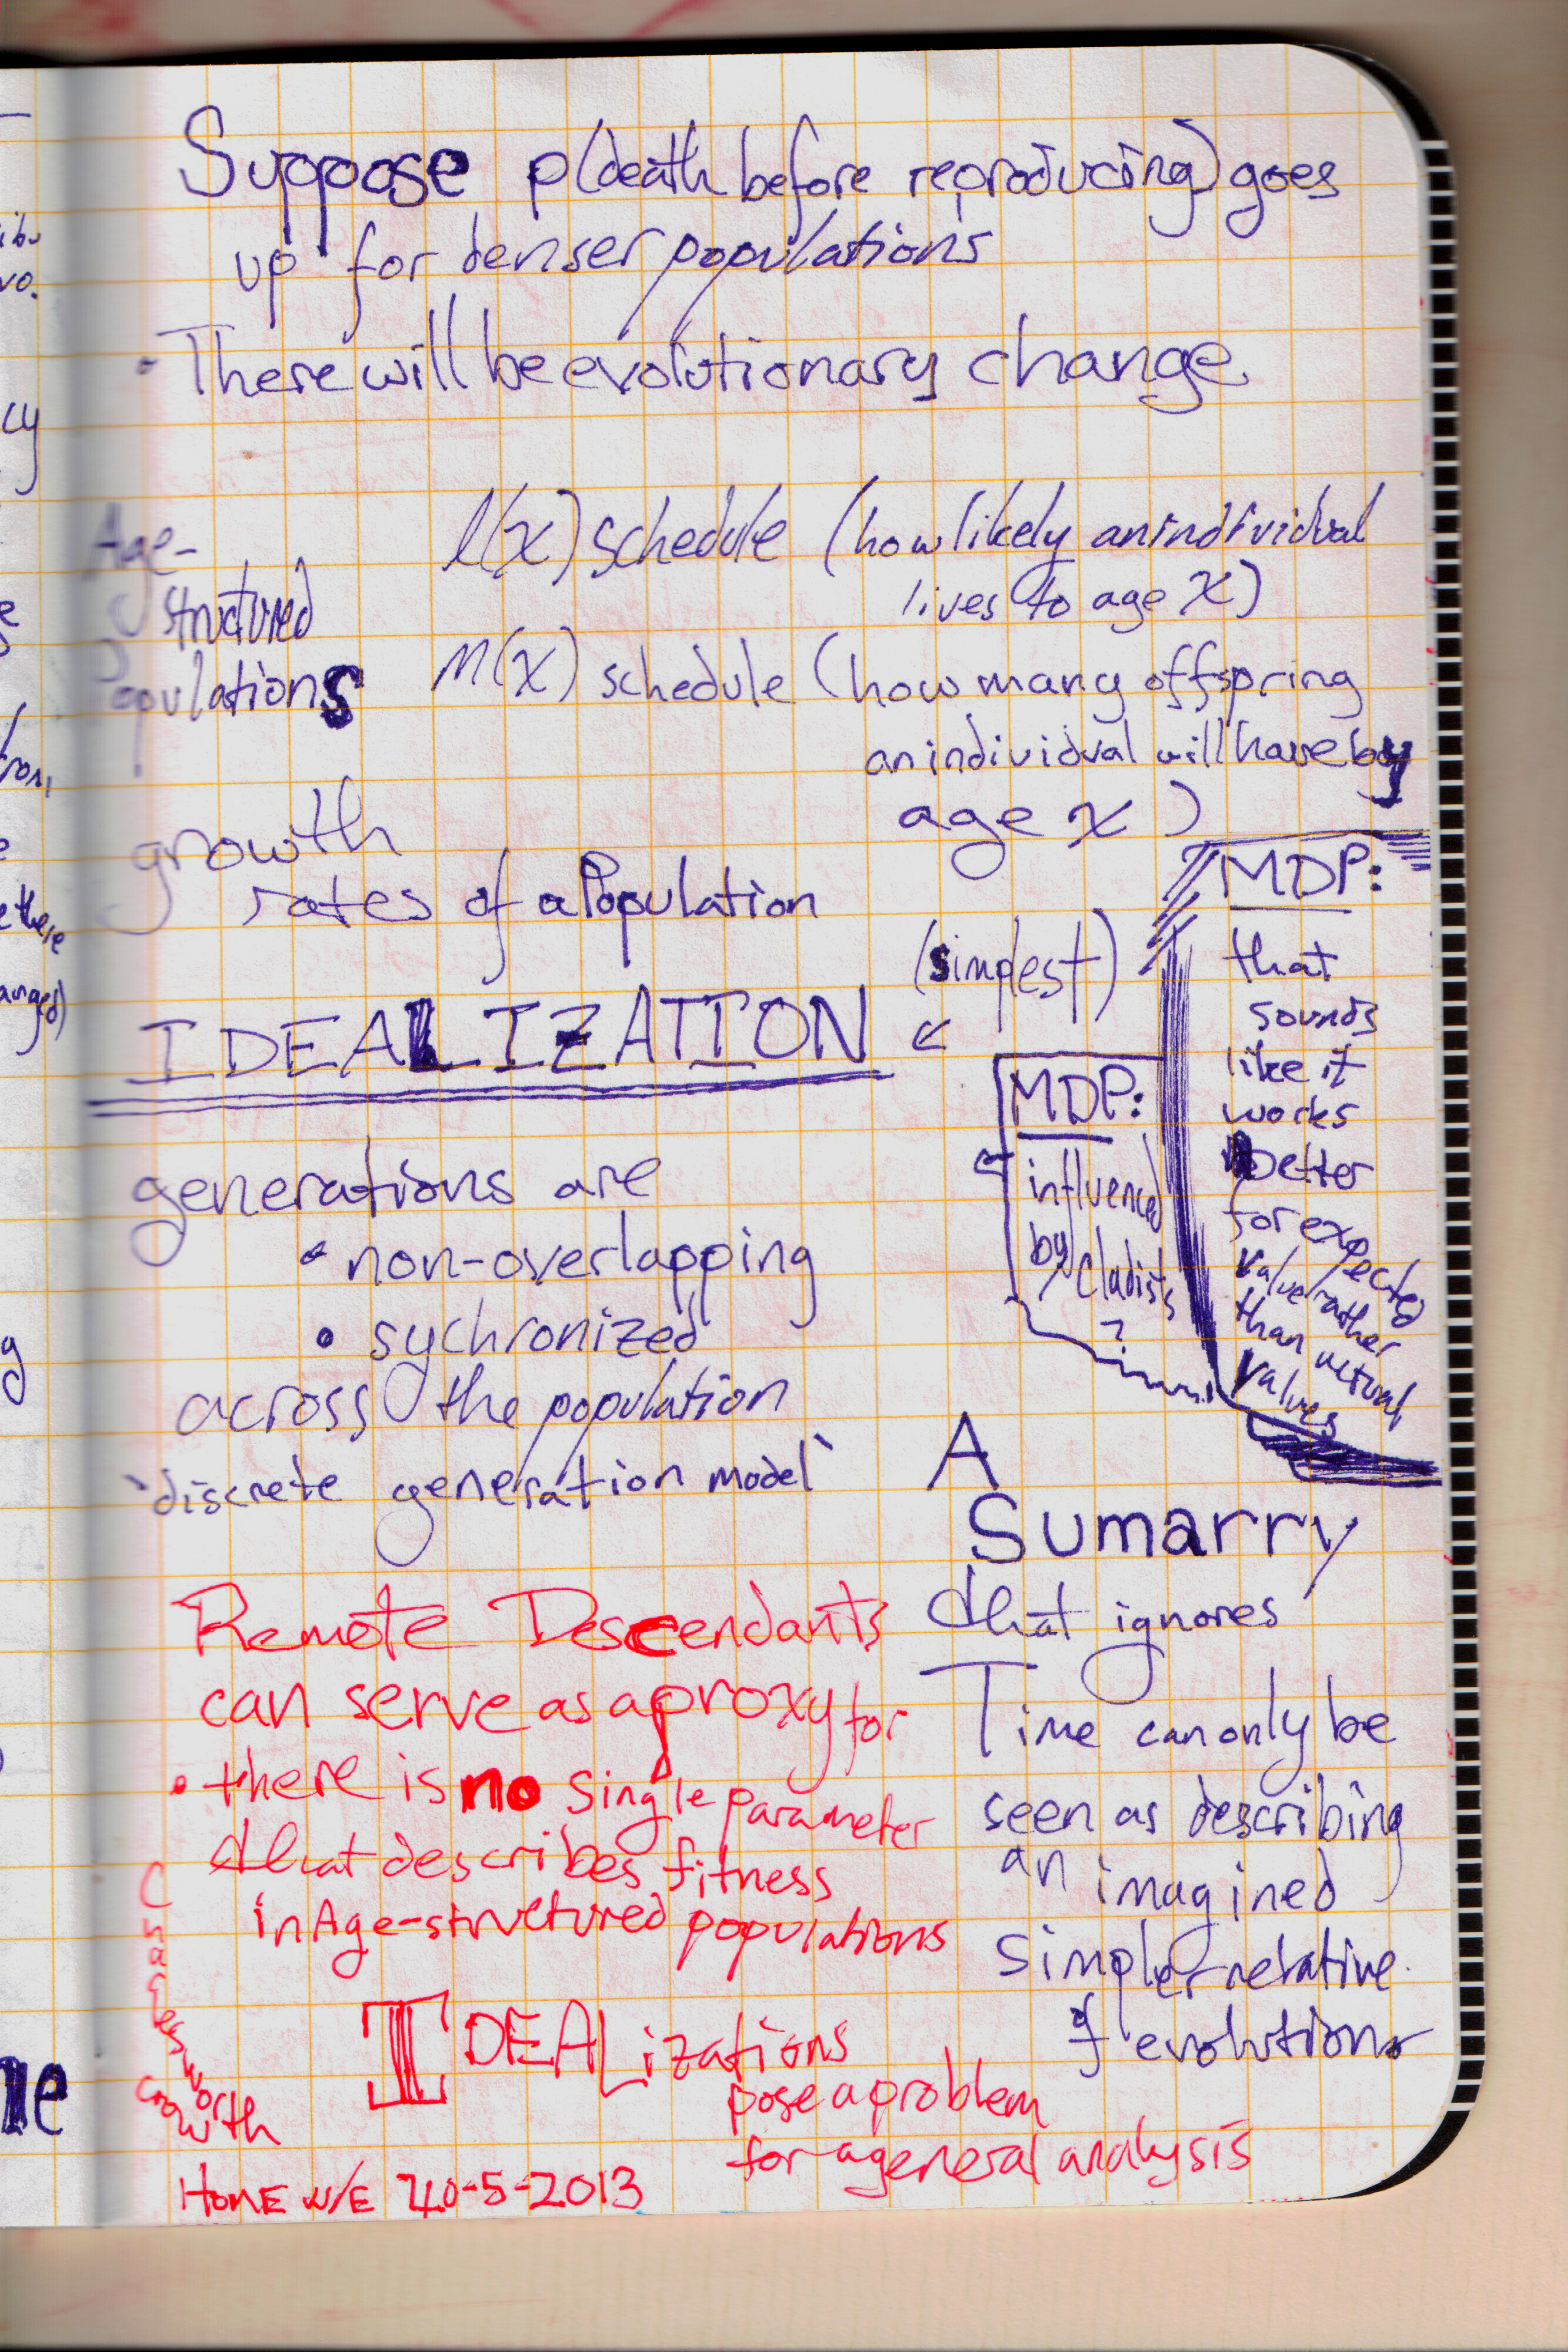 Suppose p(death before reproducing) goes
up for denser populations
• There will be evolutionary change
Age-
structured
Populations
l(x) schedule (how likely an individual
lives to age x)
M(x) schedule (how many offspring
an individual will have by
age x)
growth
rates of a Population
(simplest)
IDEALIZATION
MDP:
that
sounds
like it
works
better
for expected
value rather
than actual
values
MDP:
influenced
by Cladists
?
generations are
• non-overlapping
• sychronized
across the population
`discrete generation model`
A
Sumarry
that ignores
Time can only be
seen as describing
an imagined
simpler relative
of evolution
Remote Descendants
can serve as a proxy for
• there is no single parameter
that describes fitness
in Age-structured populations
IDEALizations
pose a problem
for a general analysis
growth
ibu
vo.
cy
e
g
e there
anged)
ne